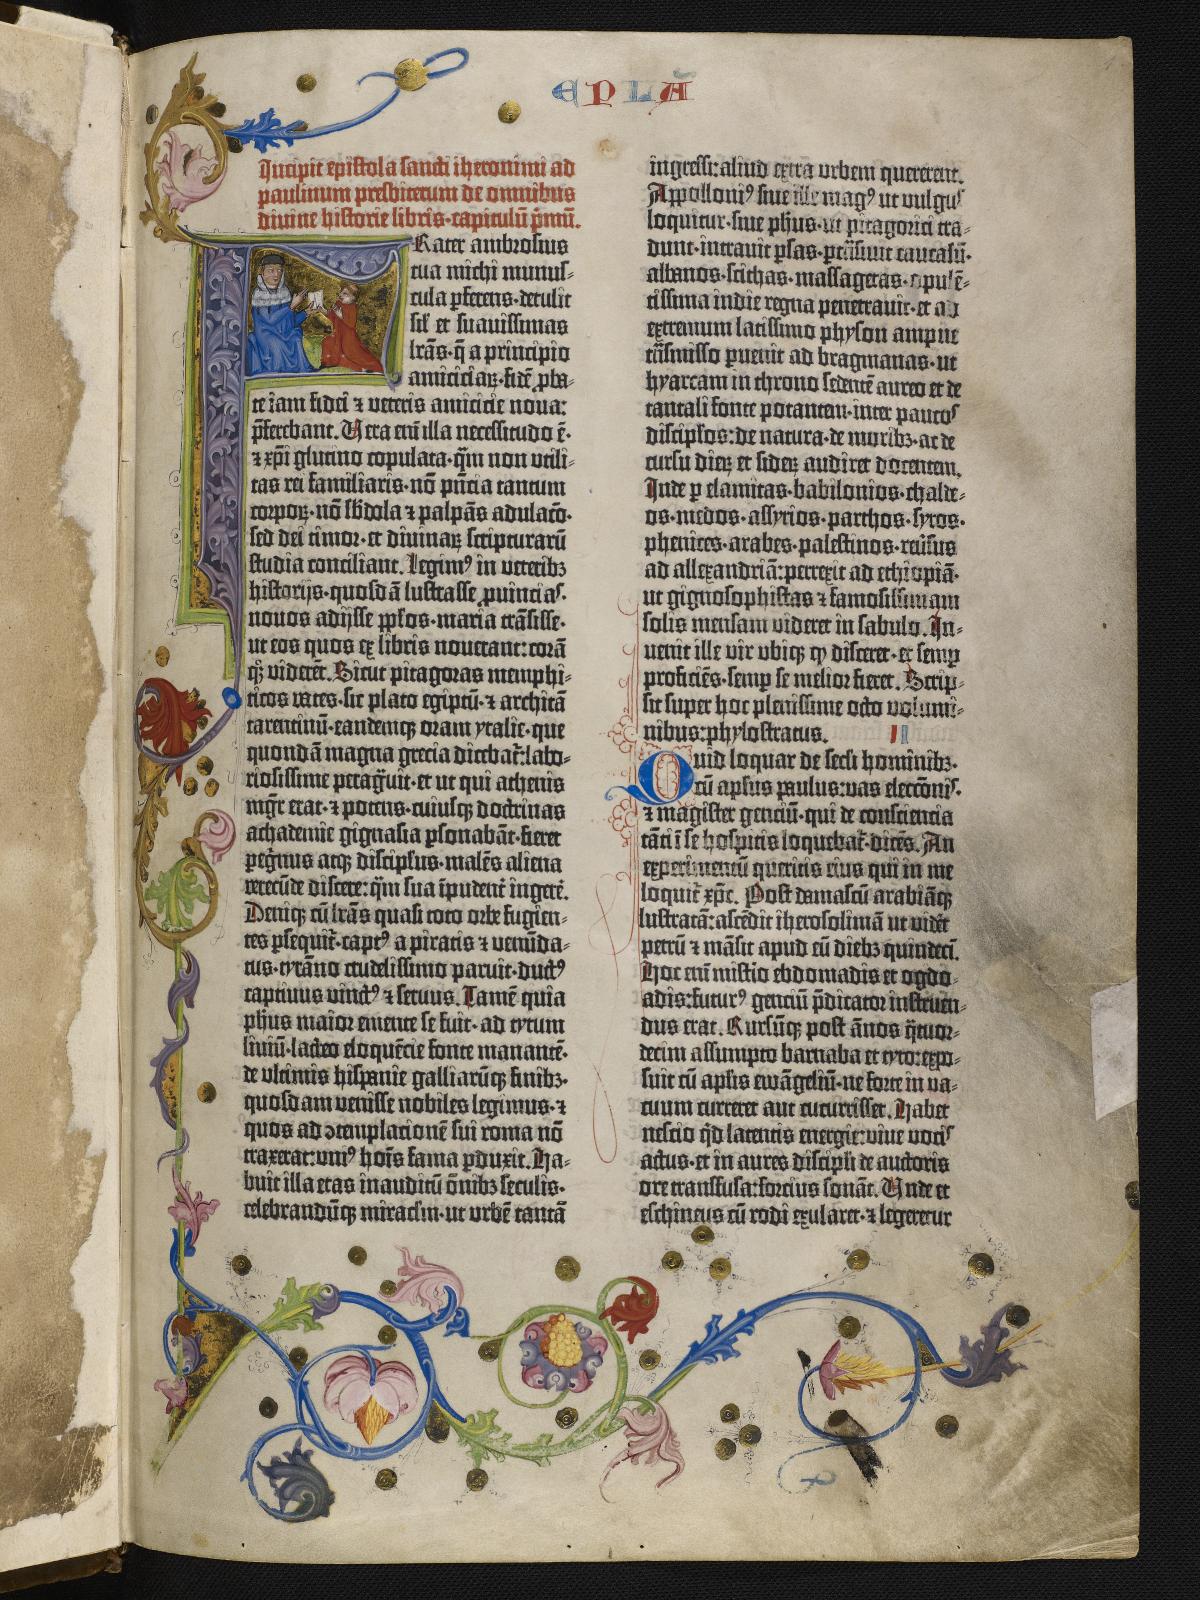 EPLA̅
Incipit epistola sancti iheronimi ad
paulinum presbiterum de omnibus
divine historie libris·capitulū p̄mū.
Frater ambrosius
tua michi munus-
cula ꝑferens·detulit
sil̄ et suavissimas
lr̄as·q̄ a principio
amiciciaꝝ·fidē ꝓba-
te iam fidei ⁊ veteris amicicie nova:
p̄ferebant. Vera eni̅ illa necessitudo ē·
⁊ xp̄i glutino copulata·q̄m non utili-
tas rei familiaris·nō p̄nc̄ia tantum
corpoꝝ·nō sb̄dola ⁊ palpās adulac̄o·
sed dei timor·et divinaꝝ scripturarū
studia conciliant. Legimꝰ in veteribꝫ
historijs·quosdā lustrasse ꝓvincias·
novos adijsse ppl̄os·maria trāsisse·
ut eos quos ex libris noverant: corā
qꝫ viderēt. Sicut pitagoras memphi-
ticos vates·sic plato egiptū·⁊ architā
tarentinū·eandemqꝫ oram ytalie·que
quondā magna grecia dicebat̄: labo-
riosissime peragravit·et ut qui athenis
mgr̄ erat·⁊ potens·cuiusqꝫ doctrinas
achademie gignasia ꝑsonabāt·fieret
peg̓nus atqꝫ discipl̄us·malēs aliena
verecūde discere: q̄m sua īpudent̄ ingerē.
Deniqꝫ cū lr̄as quasi toto orbe fugien-
tes ꝑsequit̄·captꝰ a piratis ⁊ venūda-
tus·tyrāno crudelissimo paruit·ductꝰ
captivus vinctꝰ ⁊ servus. Tamē quia
ph̄us maior emente se fuit·ad tytum
livium·lacteo eloquēcie fonte manantē·
de ultimis hispanie galliarūqꝫ finibꝫ·
quosdam venisse nobiles legimus·⁊
quos ad ↄtemplacionē sui roma nō
traxerat: uniꝰ hoīs fama ꝑduxit. Ha-
buit illa etas inauditū ōnibꝫ seculis·
celebrandūqꝫ miraclm̄·ut urbē tantā
ingressi: aliud extra urbem quererent.
Appolloniꝰ sive ille magꝰ ut vulgus
loquitur·sive ph̄us·ut pitagorici tra-
dunt·intravit ꝑsas·ꝑtrāsivit caucasū·
albanos·scithas·massagetas·opulē-
tissima indie regna penetravit·et ad
extremum latissimo physon ampne
trāsmisso ꝑvenit ad bragmanas·ut
hyarcam in throno sedentē aureo et de
tantali fonte potantem·inter paucos
discipl̄os: de natura·de moribꝫ·ac de
cursu dieꝝ et sideꝝ audiret docentem.
Inde ꝑ elamitas·babilonios·chalde-
os·medos·assyrios·parthos·syros·
phenices·arabes·palestinos·reṽsus
ad allexandriā: perrexit ad ethiopiā·
ut gignosophistas ⁊ famosissimam
solis mensam videret in sabulo. In-
venit ille vir ubiqꝫ qđ disceret·et semꝑ
proficiēs·semꝑ se melior fieret. Scrip-
sit super hoc plenissime octo volumi-
nibus: phylostratus. II
Quid loquar de secl̄i hominibꝫ·
cū apl̄us paulus: vas electōnis·
⁊ magister genciū·qui de consciencia
tāti ī se hospitis loquebat̄·dicēs. An
experimentū queritis eius qui in me
loquit̄ xp̄c. Post damascū arabiāqꝫ
lustratā: ascēdit iherosolimā ut vidēt
petrū ⁊ māsit apud eū diebꝫ quindeci̅.
Hoc eni̅ misterio ebdomadis et ogdo-
adis: futurꝰ genciū p̄dicator instruen-
dus erat. Rursūqꝫ post ānos q̄tuor-
decim assumpto barnaba et tyto: expo-
suit cū apl̄is ewāgeliū·ne forte in va-
cuum curreret aut cucurrisset. Habet
nescio qđ latentis energie: vive vocis
actus·et in aures discipl̄i de auctoris
ore transfusa: forcius sonāt. Unde et
eschineus cū rodi exularet·⁊ legeretur